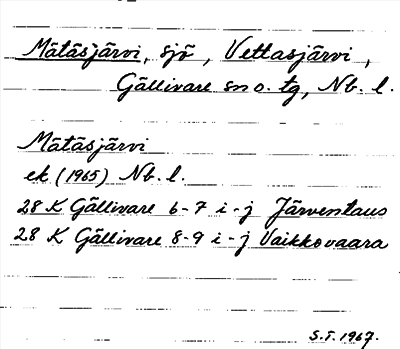 Mätäsjärvi, sjö, Vettasjärvi,
Gällivare sn o. tg, Nb. l.
Mätäsjärvi
ek (1965) Nb. l.
28 K Gällivare 6-7 i-j Järventaus
28 K Gällivare 8-9 i-j Vaikkovaara
S.F. 1967.